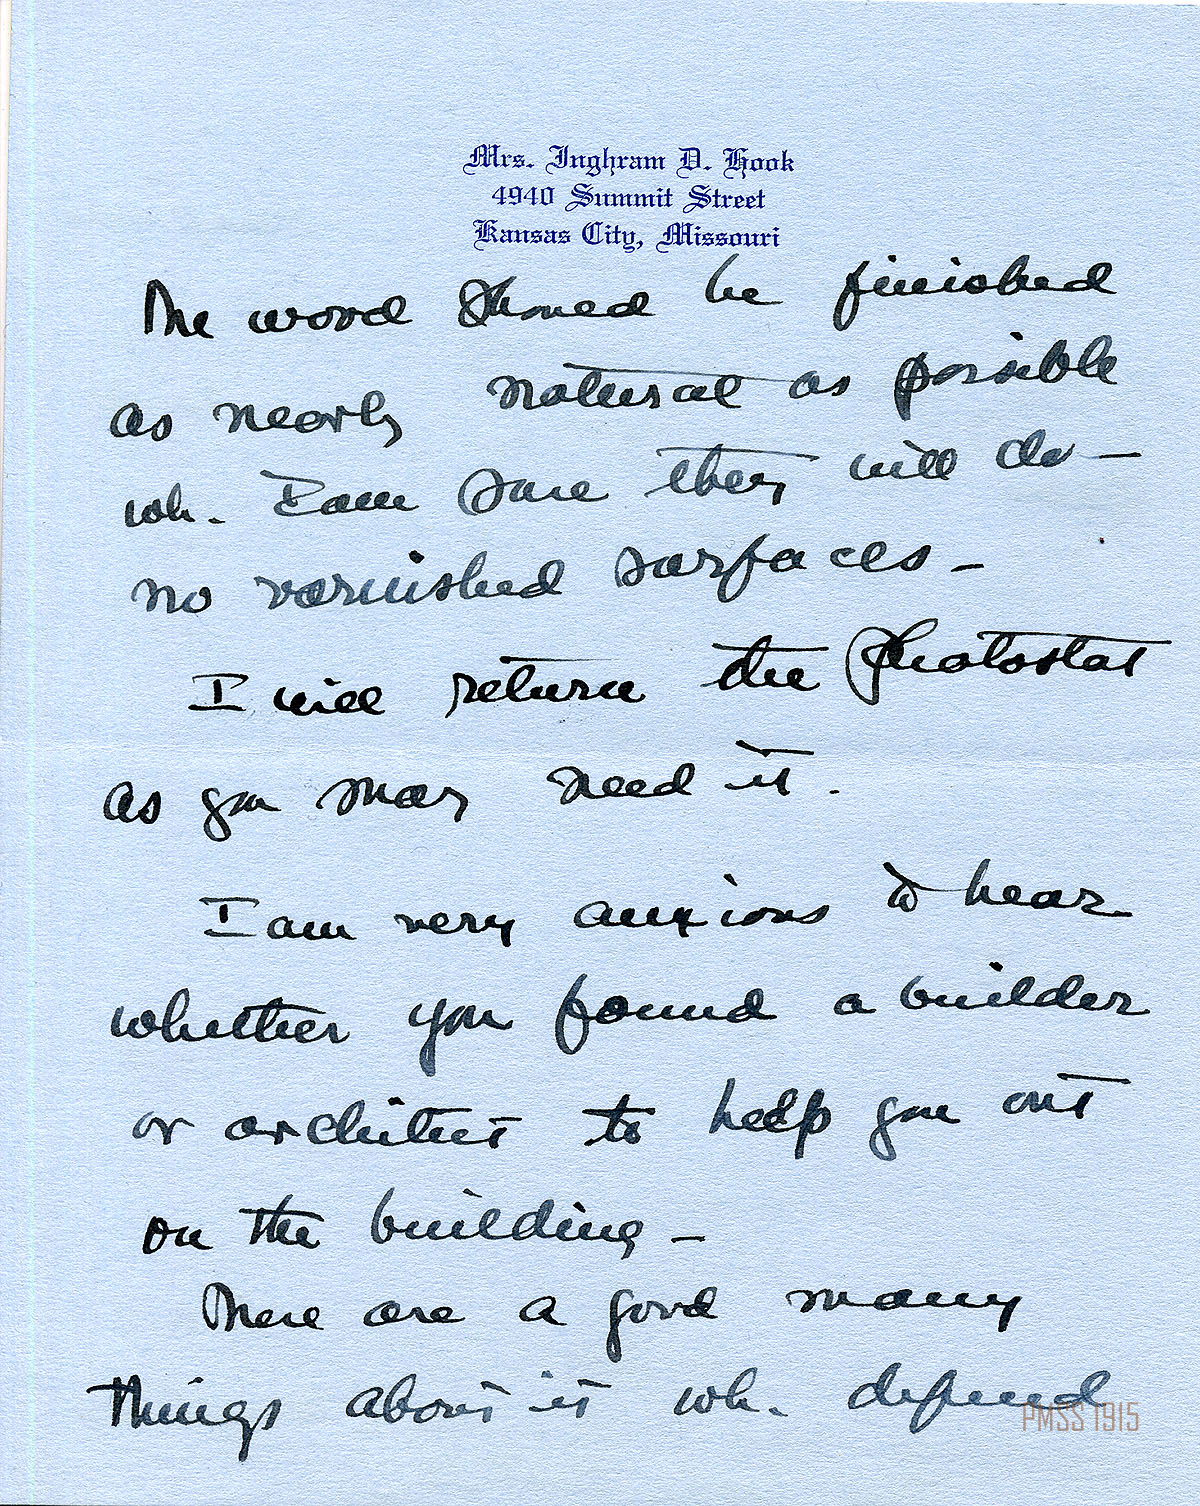 Mrs. Inghram D. Hook
4940 Summit Street
Kansas City, Missouri
The wood should be finished
as nearly natural as possible
wh. I am sure they will do —
no varnished surfaces —
I will return the Photostat
as you may need it.
I am very anxious to hear
whether you found a builder
or architect to help you out
on the building —
There are a good many
things about it wh. depend
PMSS 1915